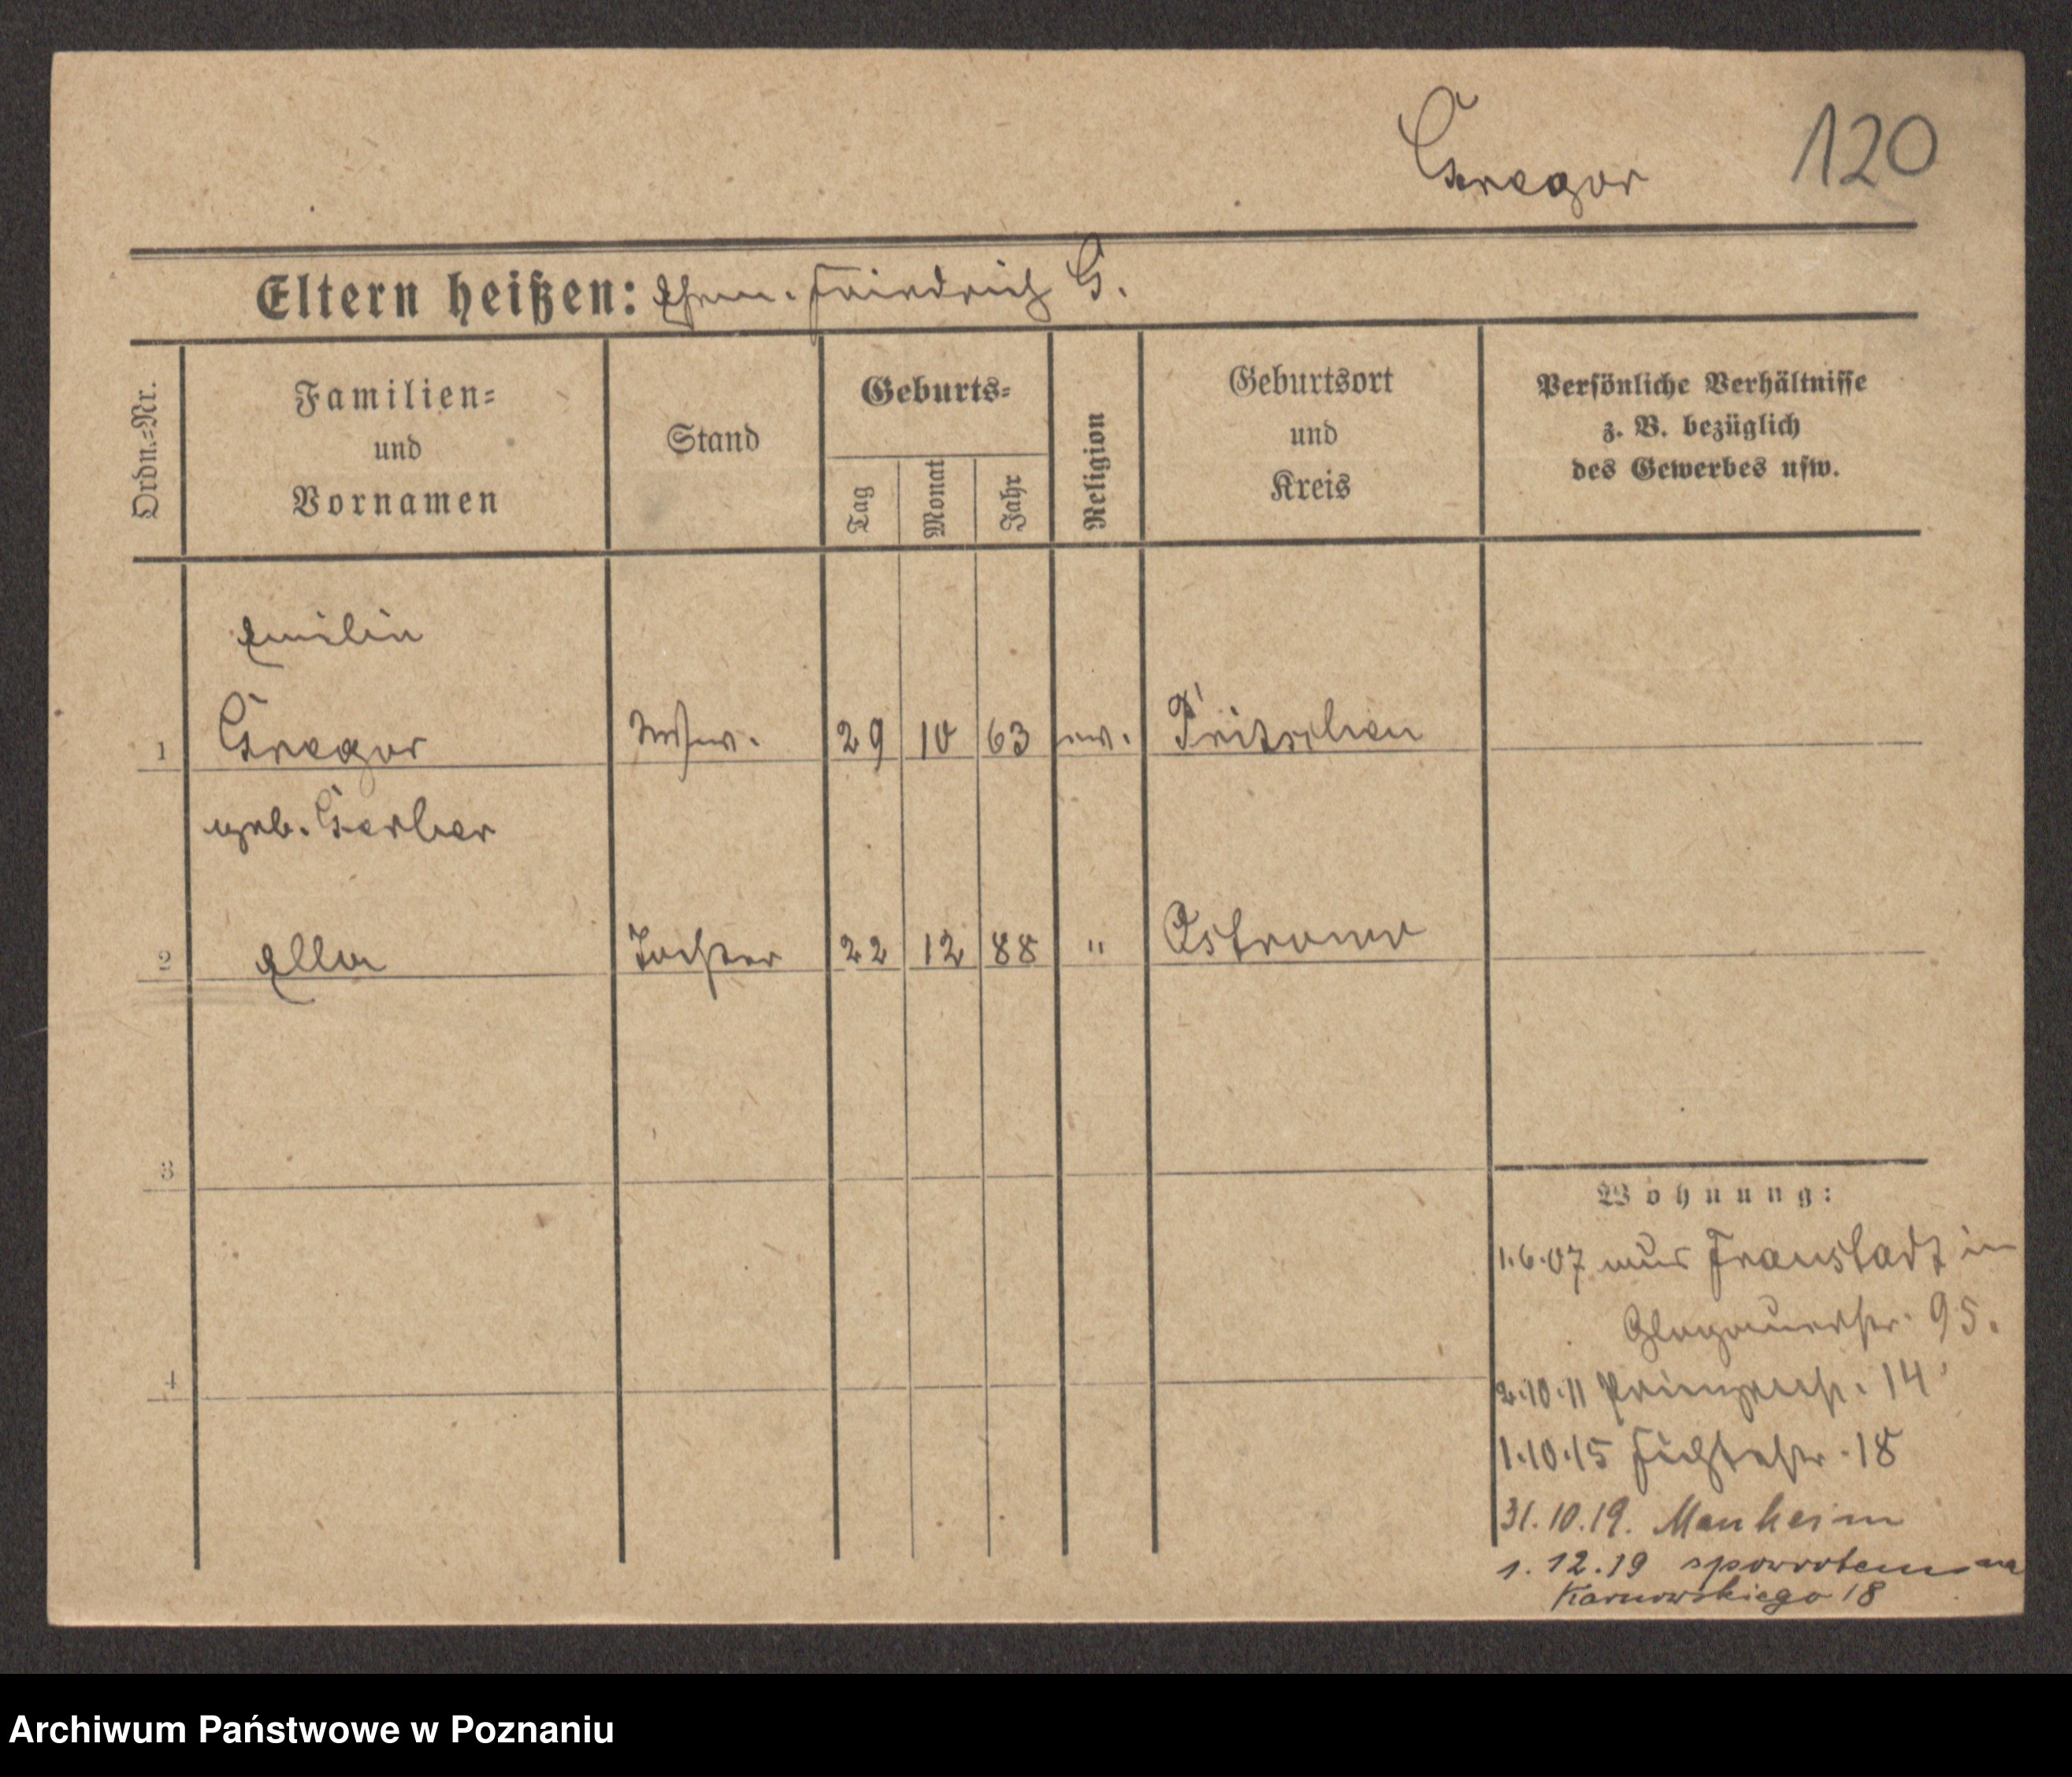 Gregor 120
Eltern heißen: Ehem. Friedrich G.
Ordn.=Nr.
Familien=
und
Vornamen
Stand
Geburts=
Tag
Monat
Jahr
Religion
Geburtsort
und
Kreis
Persönliche Verhältnisse
z. B. bezüglich
des Gewerbes usw.
Emilie
1 Gregor Wtw. 29 10 63 ev. Pritschen
geb. Gerber
2 Ella Tochter 22 12 88 " Ostrowo
3
4
Wohnung:
1.6.07 aus Fraustadt in
Glogauerstr. 95.
2.10.11 Prinzenstr. 14
1.10.15 Fichtestr. 18
31.10.19. Manheim
1.12.19 spowrotem na
Karwowskiego 18
Archiwum Państwowe w Poznaniu